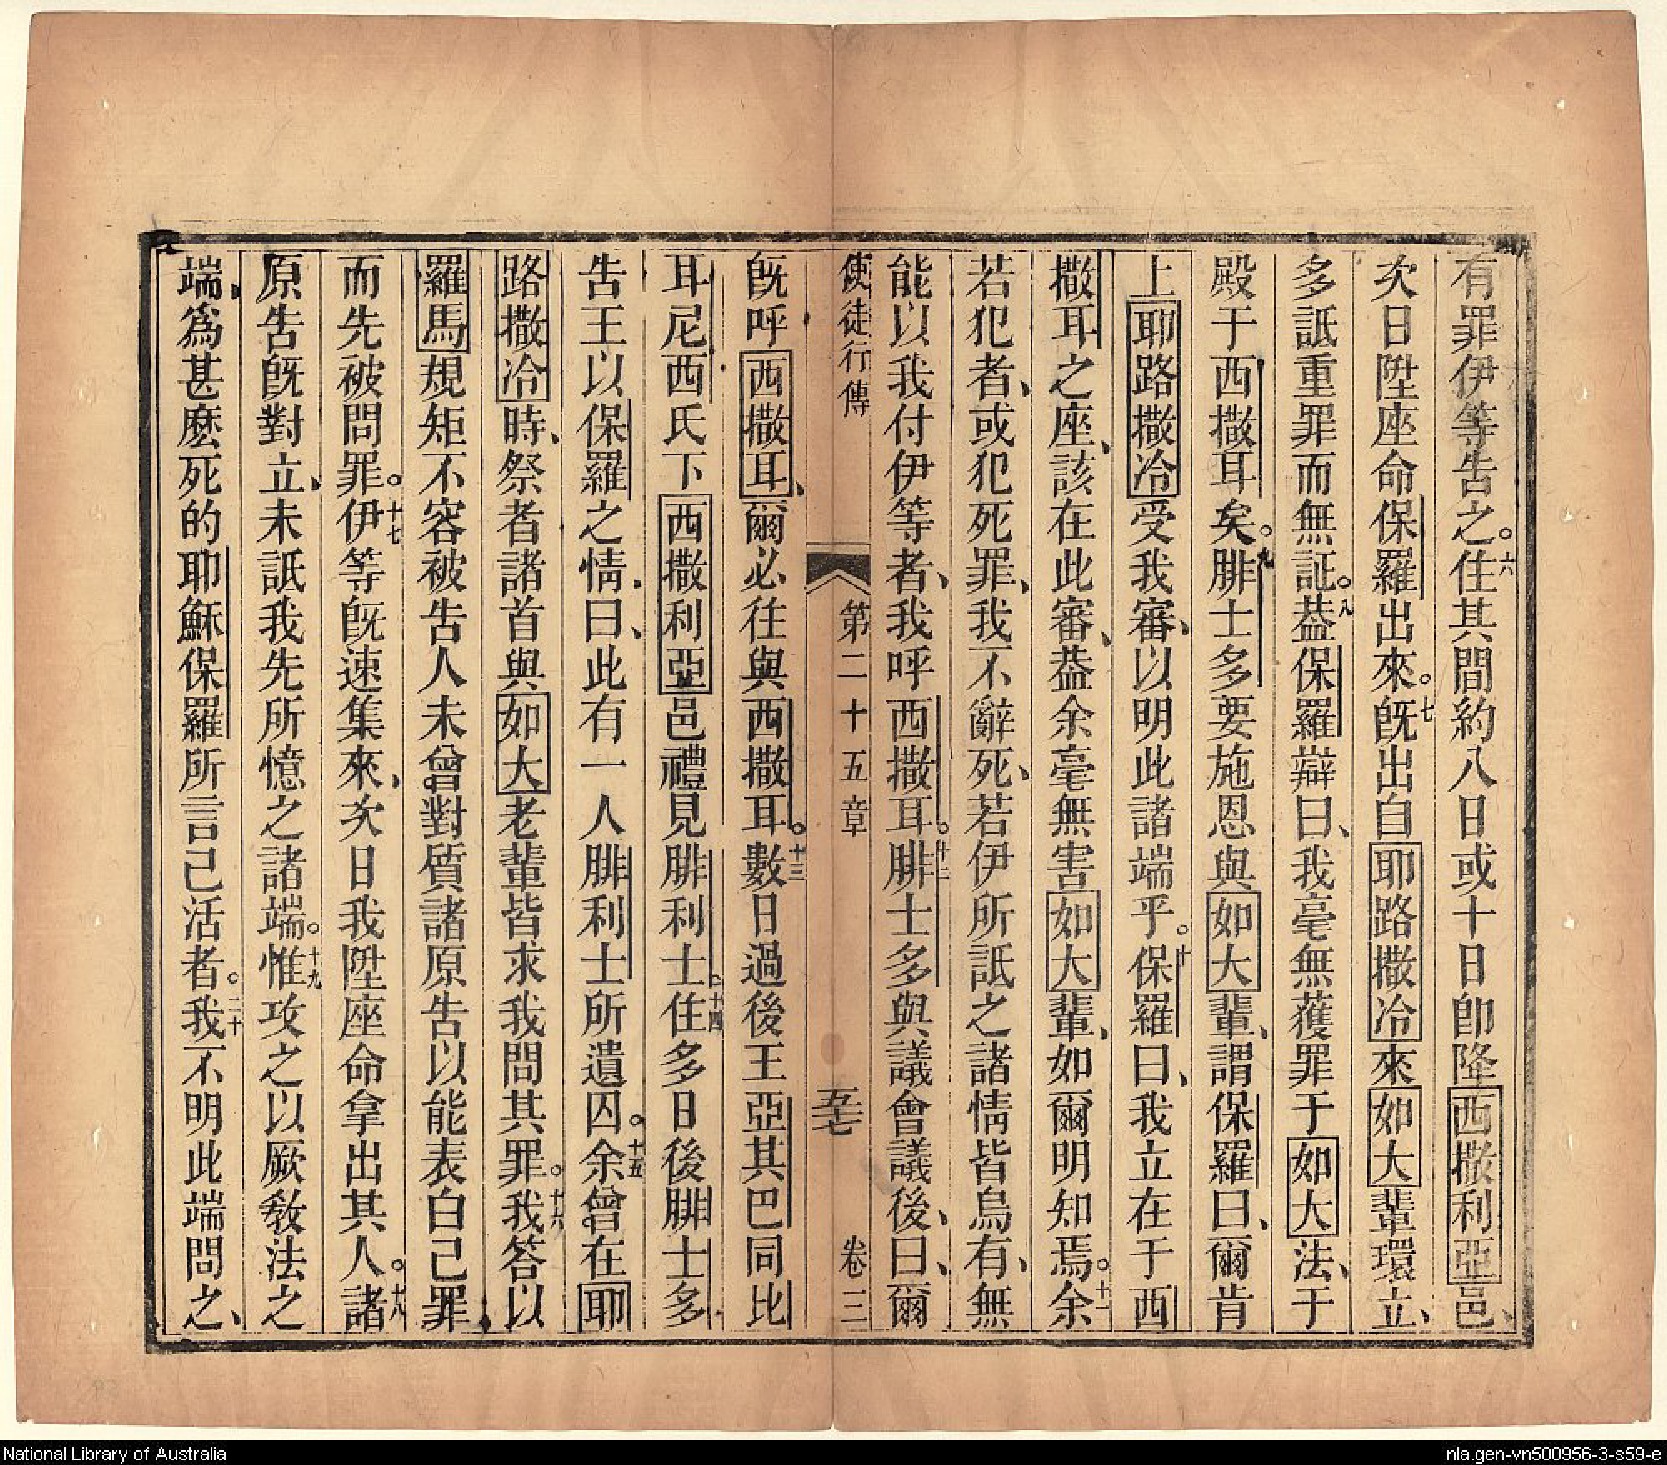 有罪伊等告之。六住其間約八日或十日即降西撒利亞邑、
次日陞座命保羅出來。七既出自耶路撒冷來如大輩環立、
多詆重罪而無証。八葢保羅辯曰、我毫無獲罪于如大法、于
殿于西撒耳矣。九腓士多要施恩與如大輩、謂保羅曰、爾肯
上耶路撒冷受我審、以明此諸端乎。十保羅曰、我立在于西
撒耳之座、該在此審、葢余毫無害如大輩、如爾明知焉。十一余
若犯者、或犯死罪、我不辭死、若伊所詆之諸情皆烏有、無
能以我付伊等者、我呼西撒耳。十二腓士多與議會議後、曰、爾
使徒行傳 第二十五章 五七 卷三
既呼西撒耳、爾必往與西撒耳。十三數日過後王亞其巴同比
耳尼西氏下西撒利亞邑禮見腓利士。十四住多日後腓士多
告王以保羅之情、曰、此有一人腓利士所遺囚。十五余曾在耶
路撒冷時、祭者諸首與如大老輩皆求我問其罪。十六我答以
羅馬規矩不容被告人未曾對質諸原告以能表白己罪
而先被問罪。十七伊等既速集來、次日我陞座命拿出其人。十八諸
原告既對立、未詆我先所憶之諸端。十九惟攻之以厥敎法之
端、爲甚麽死的耶穌保羅所言己活者。二十我不明此端問之、
National Library of Australia
nla.gen-vn500956-3-s59-e